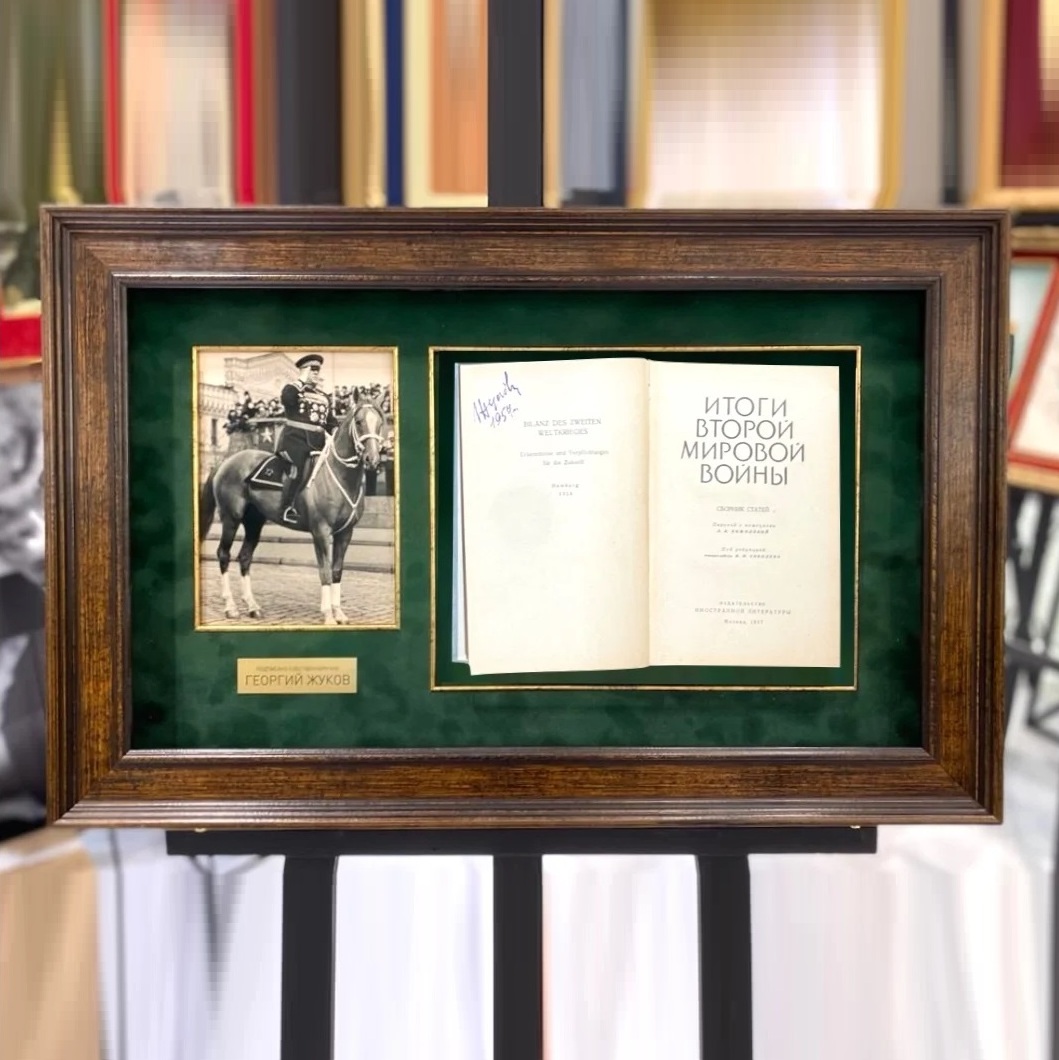 Жуков
1957г.
BILANZ DES ZWEITEN
WELTKRIEGES
Erkenntnisse und Verpflichtungen
für die Zukunft
Hamburg
ИТОГИ
ВТОРОЙ
МИРОВОЙ
ВОЙНЫ
СБОРНИК СТАТЕЙ
Перевод с немецкого
Под редакцией
ИЗДАТЕЛЬСТВО
ИНОСТРАННОЙ ЛИТЕРАТУРЫ
Москва, 1957
ГЕОРГИЙ ЖУКОВ